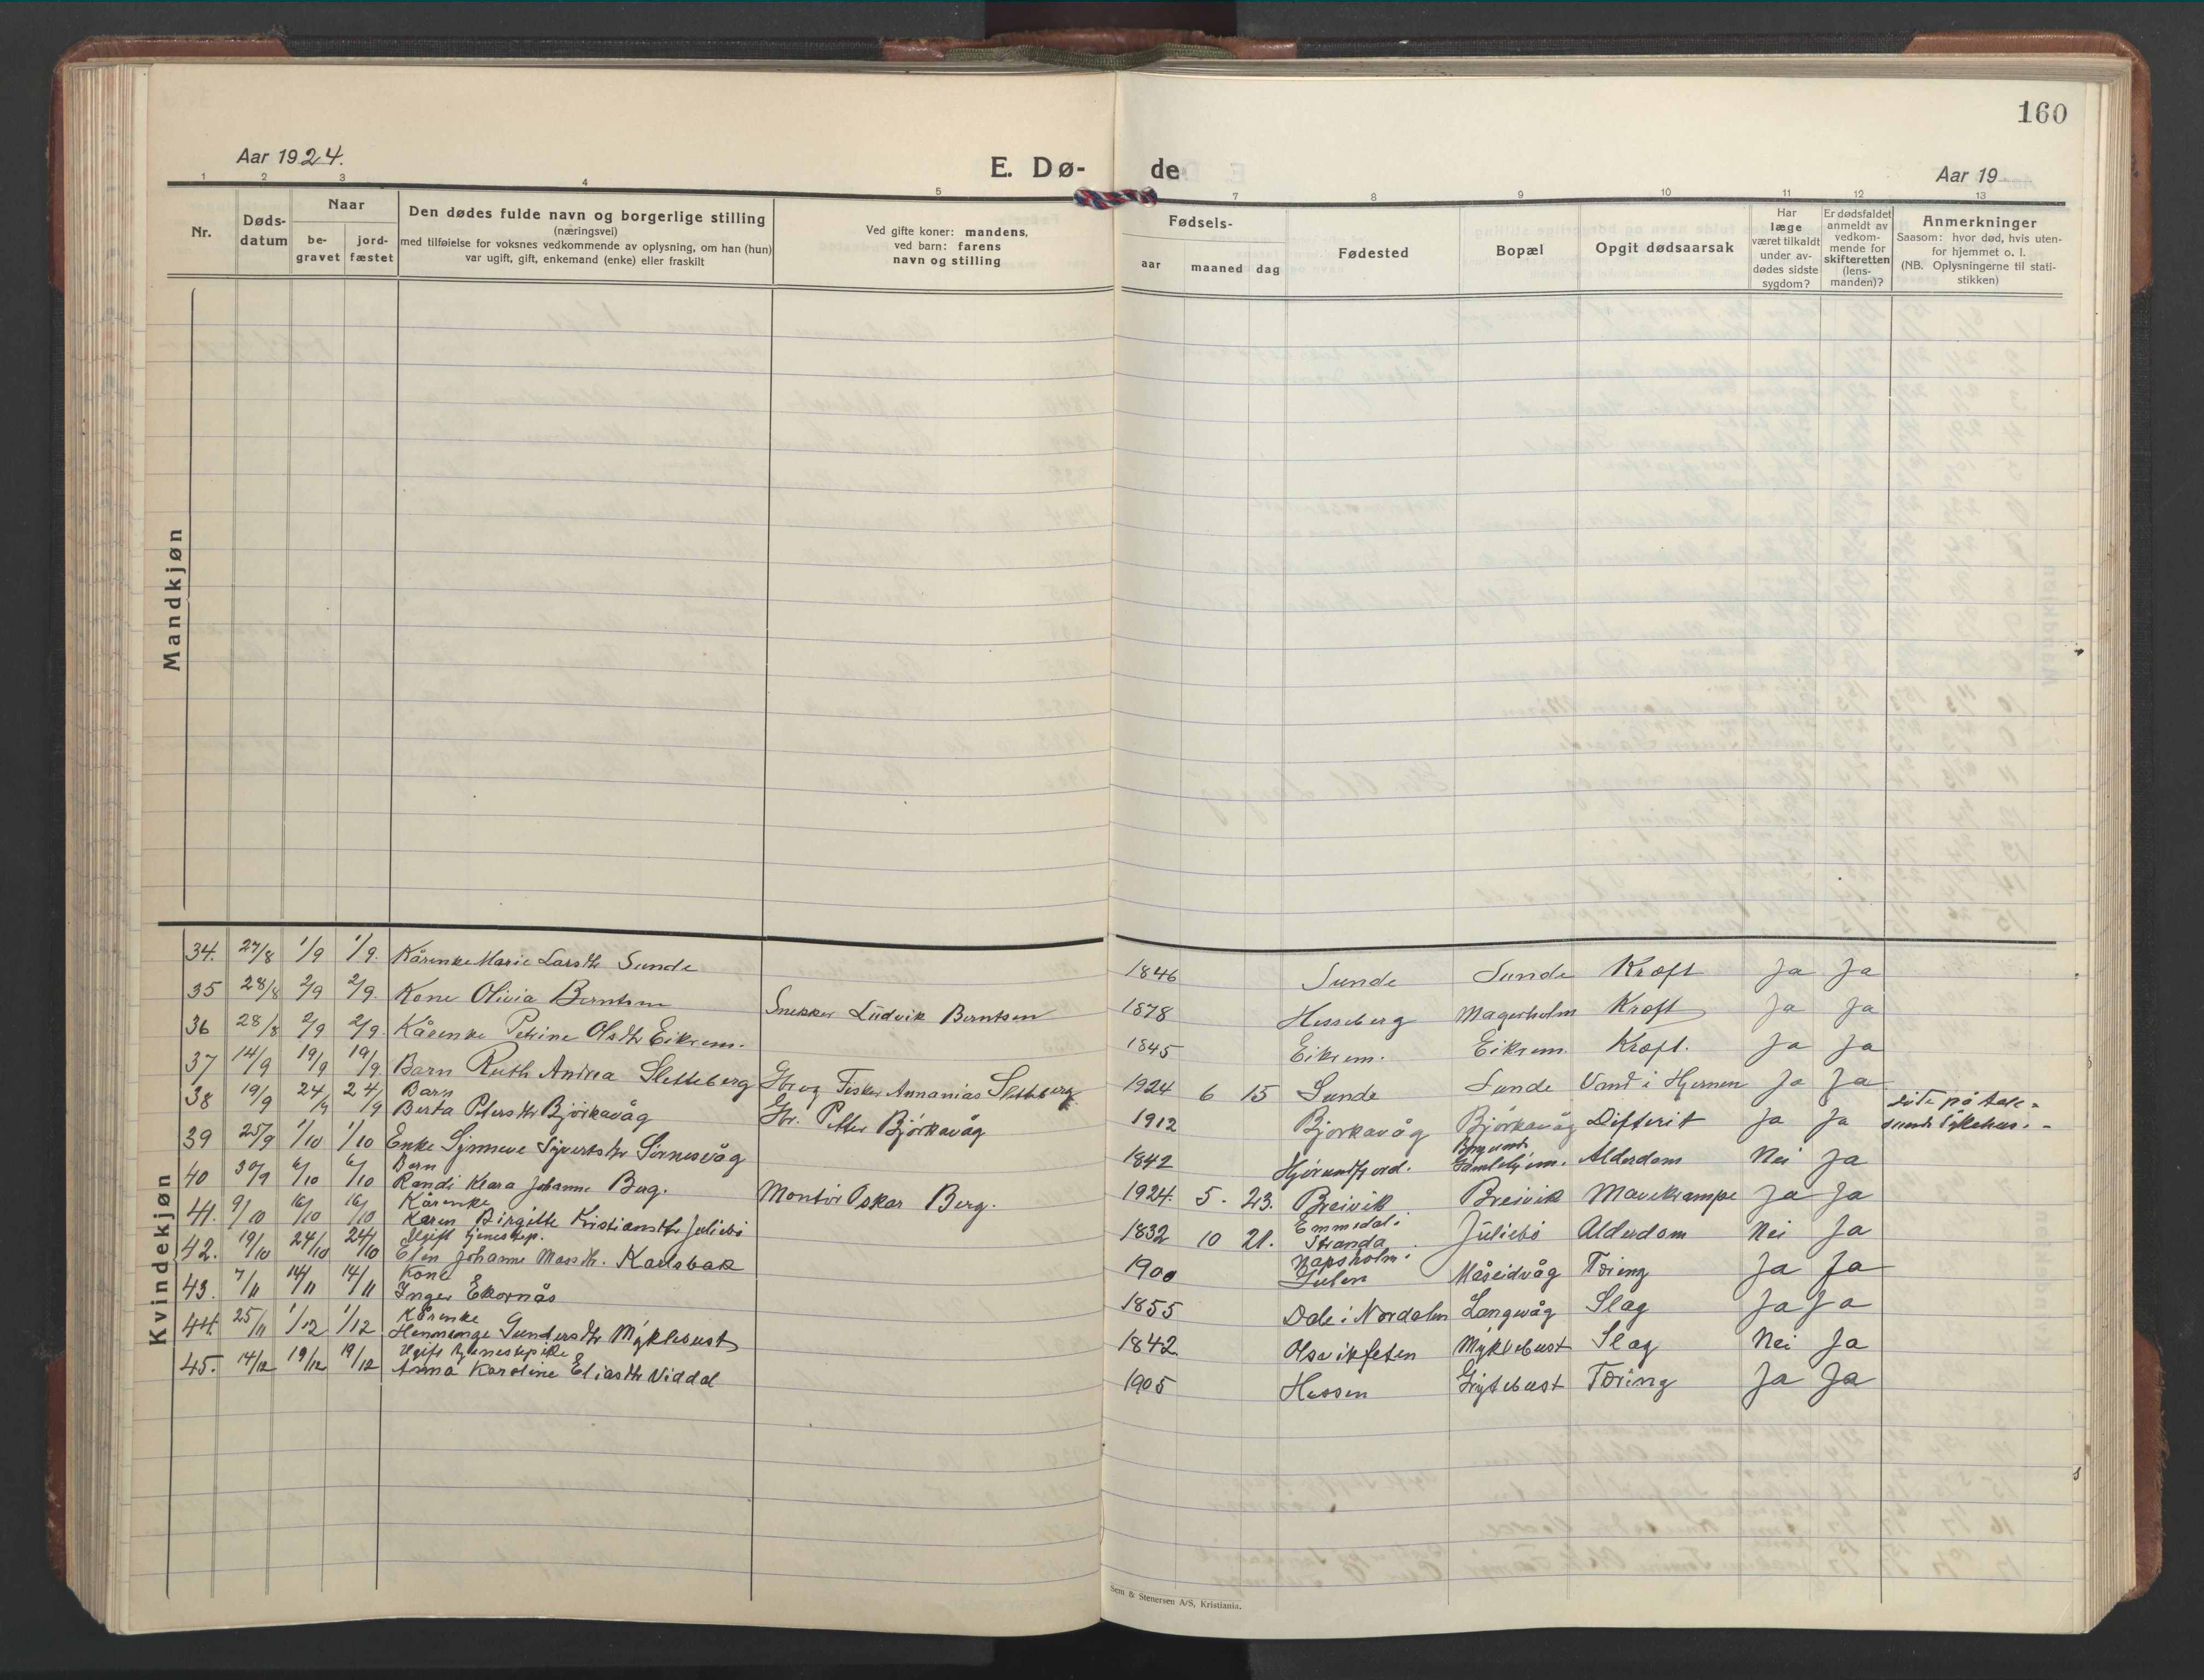 160
Aar 1924.
E. Dø-
de
Aar 19
1 2 3 4 5 7 8 9 10 11 12 13
Nr.
Døds-
datum
Naar
be-
gravet
jord-
fæstet
Den dødes fulde navn og borgerlige stilling
(næringsvei)
med tilføielse for voksnes vedkommende av oplysning, om han (hun)
var ugift, gift, enkemand (enke) eller fraskilt
Ved gifte koner: mandens,
ved barn: farens
navn og stilling
Fødsels-
aar
maaned
dag
Fødested
Bopæl
Opgit dødsaarsak
Har
læge
været tilkaldt
under av-
dødes sidste
sygdom?
Er dødsfaldet
anmeldt av
vedkom-
mende for
skifteretten
(lens-
manden)?
Anmerkninger
Saasom: hvor død, hvis uten-
for hjemmet o. l.
(NB. Oplysningerne til stati-
stikken)
Mandkjøn
Kvindekjøn
34. 27/8 1/9 1/9. Kårenke Marie Larsdtr Sunde 1846 Sunde Sunde Kræft Ja Ja
35 28/8 2/9 2/9. Kone Olivia Berntsen Snekker Ludvik Berntsen 1878 Hesseberg Magerholm Kræft Ja Ja
36 28/8 2/9 2/9. Kårenke Petrine Olsdtr Eikrem. 1845 Eikrem. Eikrem. Kræft. Ja Ja
37 14/9 19/9 19/9. Barn Ruth Andrea Sletteberg Gbr og Fisker Annanias Sletteberg 1924 6 15 Sunde Sunde Vand i Hjernen Ja Ja
Barn
38 19/9 24/9 24/9 Berta Petersdtr Bjørkavåg Gbr. Petter Bjørkavåg 1912 Bjørkavåg Bjørkavåg Difterit Ja Ja
på
sund Sykehus.
39 25/9 1/10 1/10 Enke Synneve Sivertsdtr Sörnesvåg 1842 Hjørundfjord. Borgund Gamlehjem. Alderdom Nei Ja
Barn
40 30/9 6/10 6/10 Randi Klara Johanne Berg. Montør Oskar Berg. 1924. 5. 23. Breivik Breivik Mavekrampe Ja Ja
Kårenke
41. 9/10 16/10 16/10 Karen Birgitte Kristiansdtr Juliebö 1832 10 21. Emmedal i Stranda Juliebö Alderdom Nei Ja
Ugift tjenestep.
42. 19/10 24/10 24/10 Elen Johanne Massdtr. Karlsbak 1900 Gulen Måseidvåg Tæring Ja Ja
Kone
43. 7/11 14/11 14/11 Inger Ekornås 1855 Dale i Nordalen Langevåg Slag Ja Ja
Kårenke
44. 25/11 1/12 1/12 Gundersdtr Myklebust 1842 Olsvikfeten Myklebust Slag Nei Ja
Ugift tjenestepike
45. 14/12 19/12 19/12 Anna Karoline Eliasdtr Viddal 1905 Hessen Grytebust Tæring Ja Ja
Sem & Stenersen A/S, Kristiania.